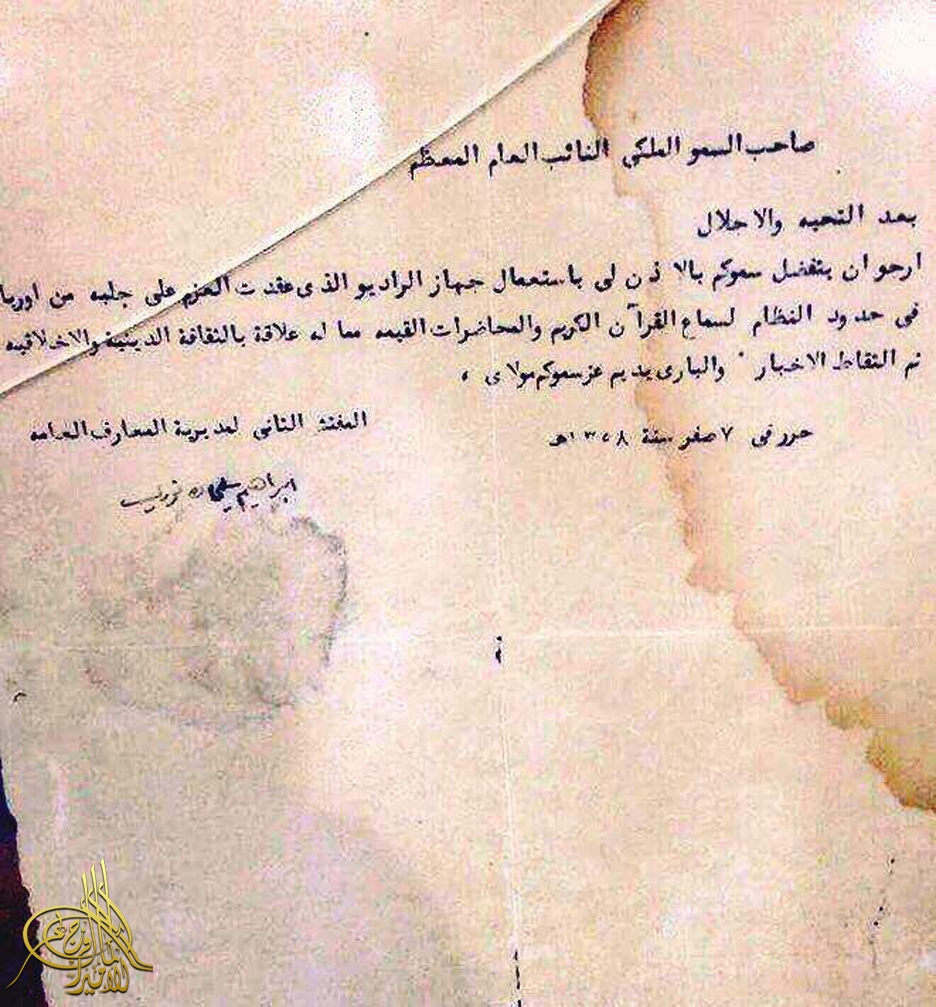 صاحب السمو الملكي النائب العام المعظم
بعد التحيه والاجلال
ارجو ان يتفضل سموكم بالاذن لي باستعمال جهاز الراديو الذي عقدت العزم على جلبه من اوربا
في حدود النظام لسماع القرآن الكريم والمحاضرات القيمه مما له علاقة بالثقافة الدينية والاخلاقيه
ثم التقاط الاخبار والباري يديم عز سموكم مولاي ،
حرر في ٧ صفر سنة ١٣٥٨هـ
المفتش الثاني لمديرية المعارف العامه
ابراهيم